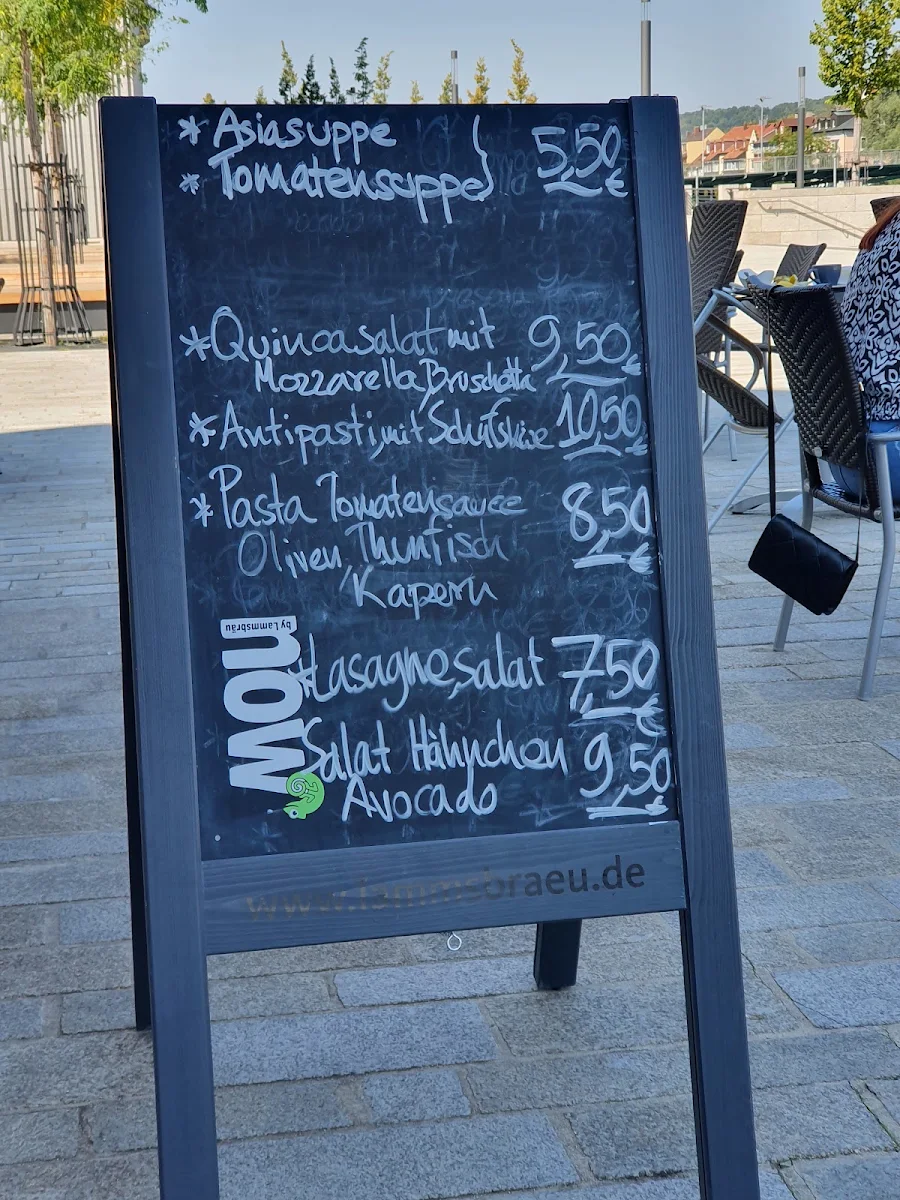 * Asiasuppe
* Tomatensuppe } 5,50 €
* Quinoasalat mit 9,50 €
Mozzarella, Bruschetta
* Antipasti, mit Schafskäse 10,50 €
* Pasta Tomatensauce 8,50 €
Oliven, Thunfisch
Kapern
now by Lammsbräu
* Lasagne, salat 7,50 €
Salat Hähnchen 9,50 €
Avocado
www.lammsbraeu.de